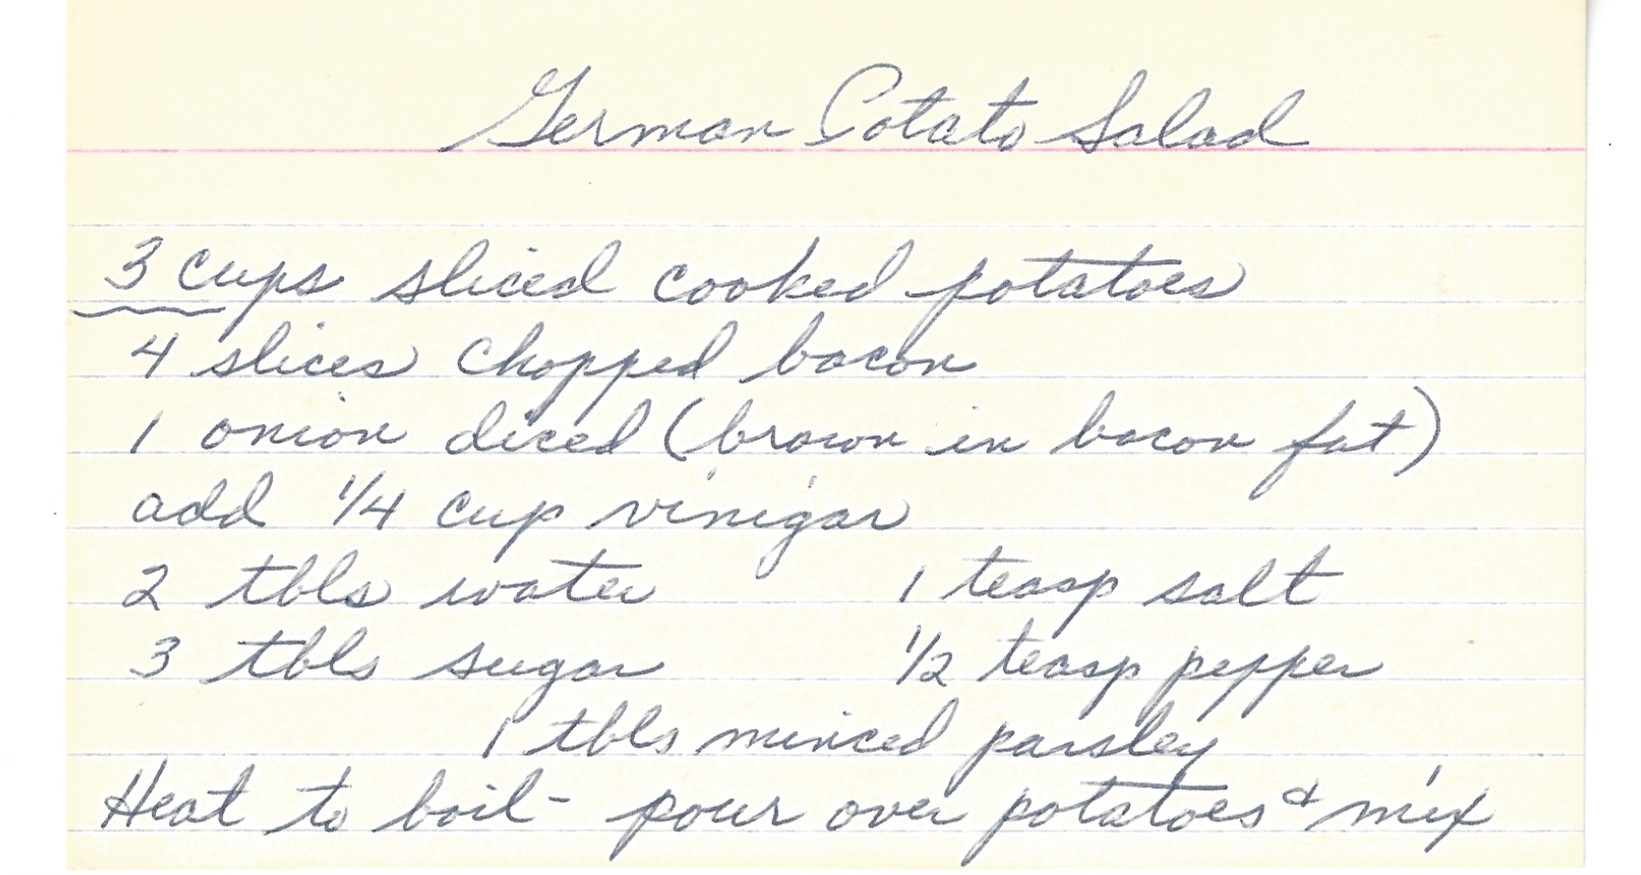 German Potato Salad
3 cups sliced cooked potatoes
4 slices chopped bacon
1 onion diced (brown in bacon fat)
add 1/4 cup vinigar
2 tbls water 1 teasp salt
3 tbls sugar 1/2 teasp pepper
1 tbls minced parsley
Heat to boil - pour over potatoes & mix